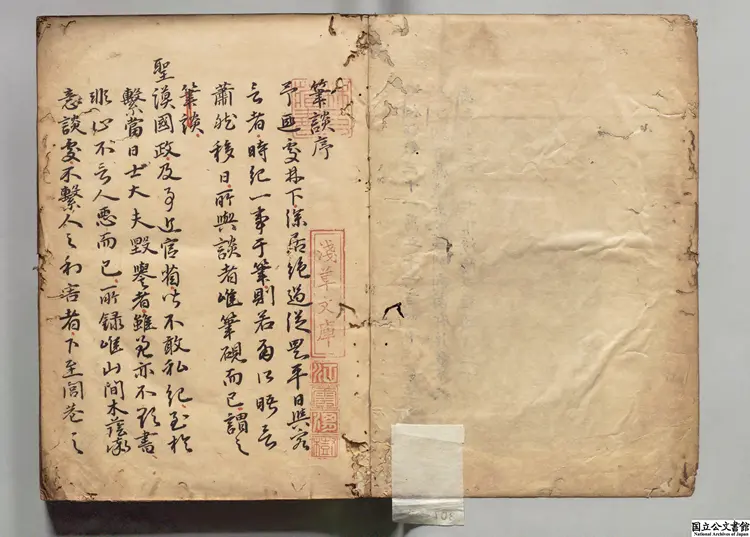 筆談序
予退處林下深居絕過從思平日與客
言者時紀一事于筆則若有所晤言
蕭然移日所與談者唯筆硯而已謂之
筆談
聖謨國政及事近宮省皆不敢私紀至於
繫當日士大夫毀譽者雖善亦不欲書
非止不言人惡而已所錄唯山間木蔭率
意談噱不繫人之利害者下至閭巷之
淺草文庫
江雲渭樹
国立公文書館
National Archives of Japan